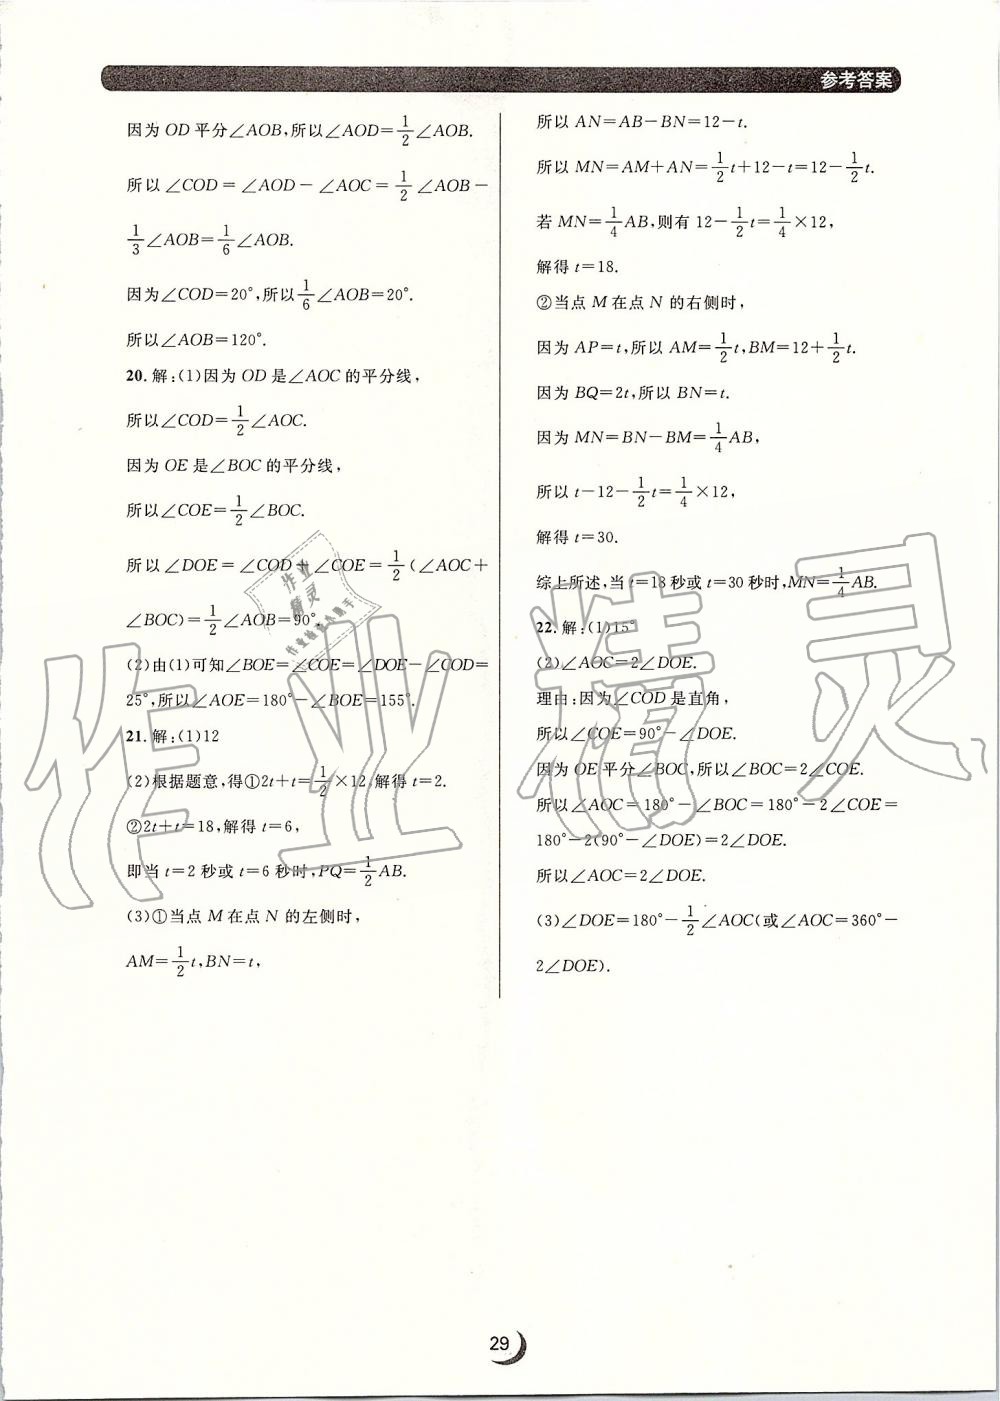 参考答案
因为 OD 平分∠AOB,所以∠AOD=1/2∠AOB.
所以∠COD=∠AOD-∠AOC=1/2∠AOB-
1/3∠AOB=1/6∠AOB.
因为∠COD=20°,所以1/6∠AOB=20°.
所以∠AOB=120°.
20.解:(1)因为 OD 是∠AOC 的平分线,
所以∠COD=1/2∠AOC.
因为 OE 是∠BOC 的平分线,
所以∠COE=1/2∠BOC.
所以∠DOE=∠COD+∠COE=1/2(∠AOC+
∠BOC)=1/2∠AOB=90°.
(2)由(1)可知∠BOE=∠COE=∠DOE-∠COD=
25°,所以∠AOE=180°-∠BOE=155°.
21.解:(1)12
(2)根据题意,得①2t+t=1/2×12,解得 t=2.
②2t+t=18,解得 t=6,
即当 t=2 秒或 t=6 秒时,PQ=1/2AB.
(3)①当点 M 在点 N 的左侧时,
AM=1/2t,BN=t,
所以 AN=AB-BN=12-t.
所以 MN=AM+AN=1/2t+12-t=12-1/2t.
若 MN=1/4AB,则有 12-1/2t=1/4×12,
解得 t=18.
②当点 M 在点 N 的右侧时,
因为 AP=t,所以 AM=1/2t,BM=12+1/2t.
因为 BQ=2t,所以 BN=t.
因为 MN=BN-BM=1/4AB,
所以 t-12-1/2t=1/4×12,
解得 t=30.
综上所述,当 t=18 秒或 t=30 秒时,MN=1/4AB.
22.解:(1)15°
(2)∠AOC=2∠DOE.
理由:因为∠COD 是直角,
所以∠COE=90°-∠DOE.
因为 OE 平分∠BOC,所以∠BOC=2∠COE.
所以∠AOC=180°-∠BOC=180°-2∠COE=
180°-2(90°-∠DOE)=2∠DOE.
所以∠AOC=2∠DOE.
(3)∠DOE=180°-1/2∠AOC(或∠AOC=360°-
2∠DOE).
作业精灵
作业
精灵
29